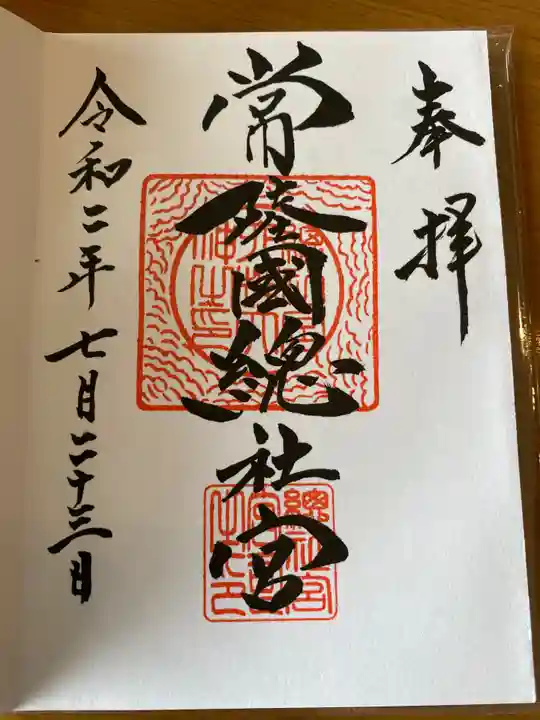 奉拝
常陸國総社宮
令和二年七月二十三日
總社宮